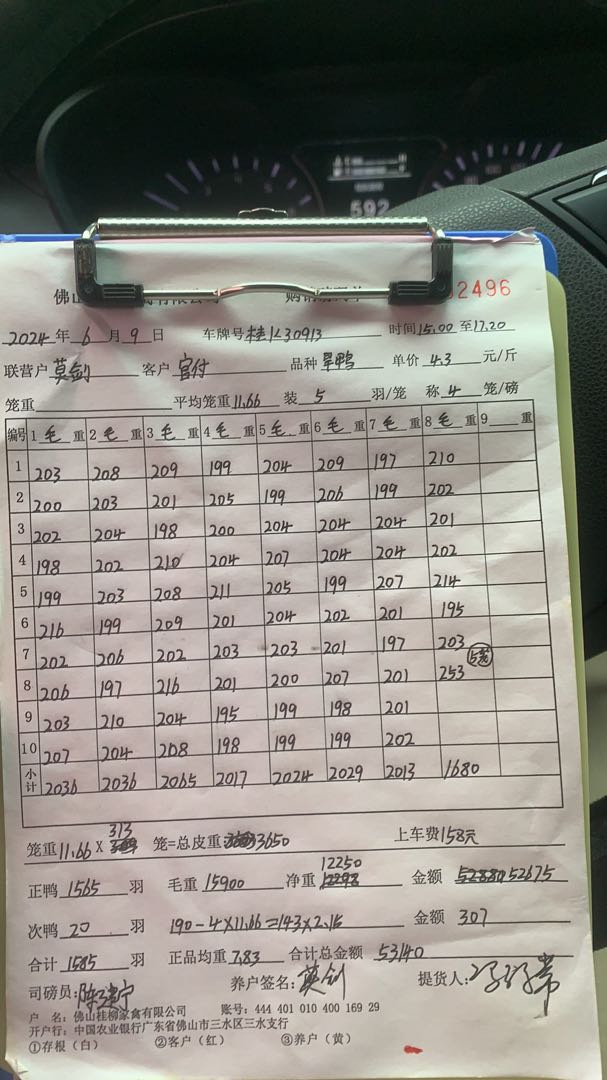 592
佛山
有限公司
2496
2024年6月9日 车牌号桂K30913 时间15.00至17.20
联营户莫剑 客户官付 品种旱鸭 单价4.3元/斤
笼重 平均笼重11.66 装5羽/笼 称4笼/磅
编号 1毛重 2毛重 3毛重 4毛重 5毛重 6毛重 7毛重 8毛重 9重
1 203 208 209 199 204 209 197 210
2 200 203 201 205 199 206 199 202
3 202 204 198 200 204 204 204 201
4 198 202 210 204 207 204 204 202
5 199 203 208 211 205 199 207 214
6 216 199 209 201 204 202 201 195
7 202 206 202 203 203 201 197 203
8 206 197 216 201 200 207 201 253 5笼
9 203 210 204 195 199 198 201
10 207 204 208 198 199 199 202
小计 2036 2036 2065 2017 2024 2029 2013 1680
313
笼重11.66X 笼=总皮重 3650 上车费158元
12250
正鸭1565羽 毛重15900 净重12298 金额52880 52675
次鸭20羽 190-4X11.66=143X2.15 金额307
合计1585羽 正品均重7.83 合计总金额53140
司磅员: 养户签名:莫剑 提货人:
户 名:佛山桂柳家禽有限公司 账号:444 401 010 400 169 29
开户行:中国农业银行广东省佛山市三水区三水支行
①存根(白) ②客户(红) ③养户(黄)